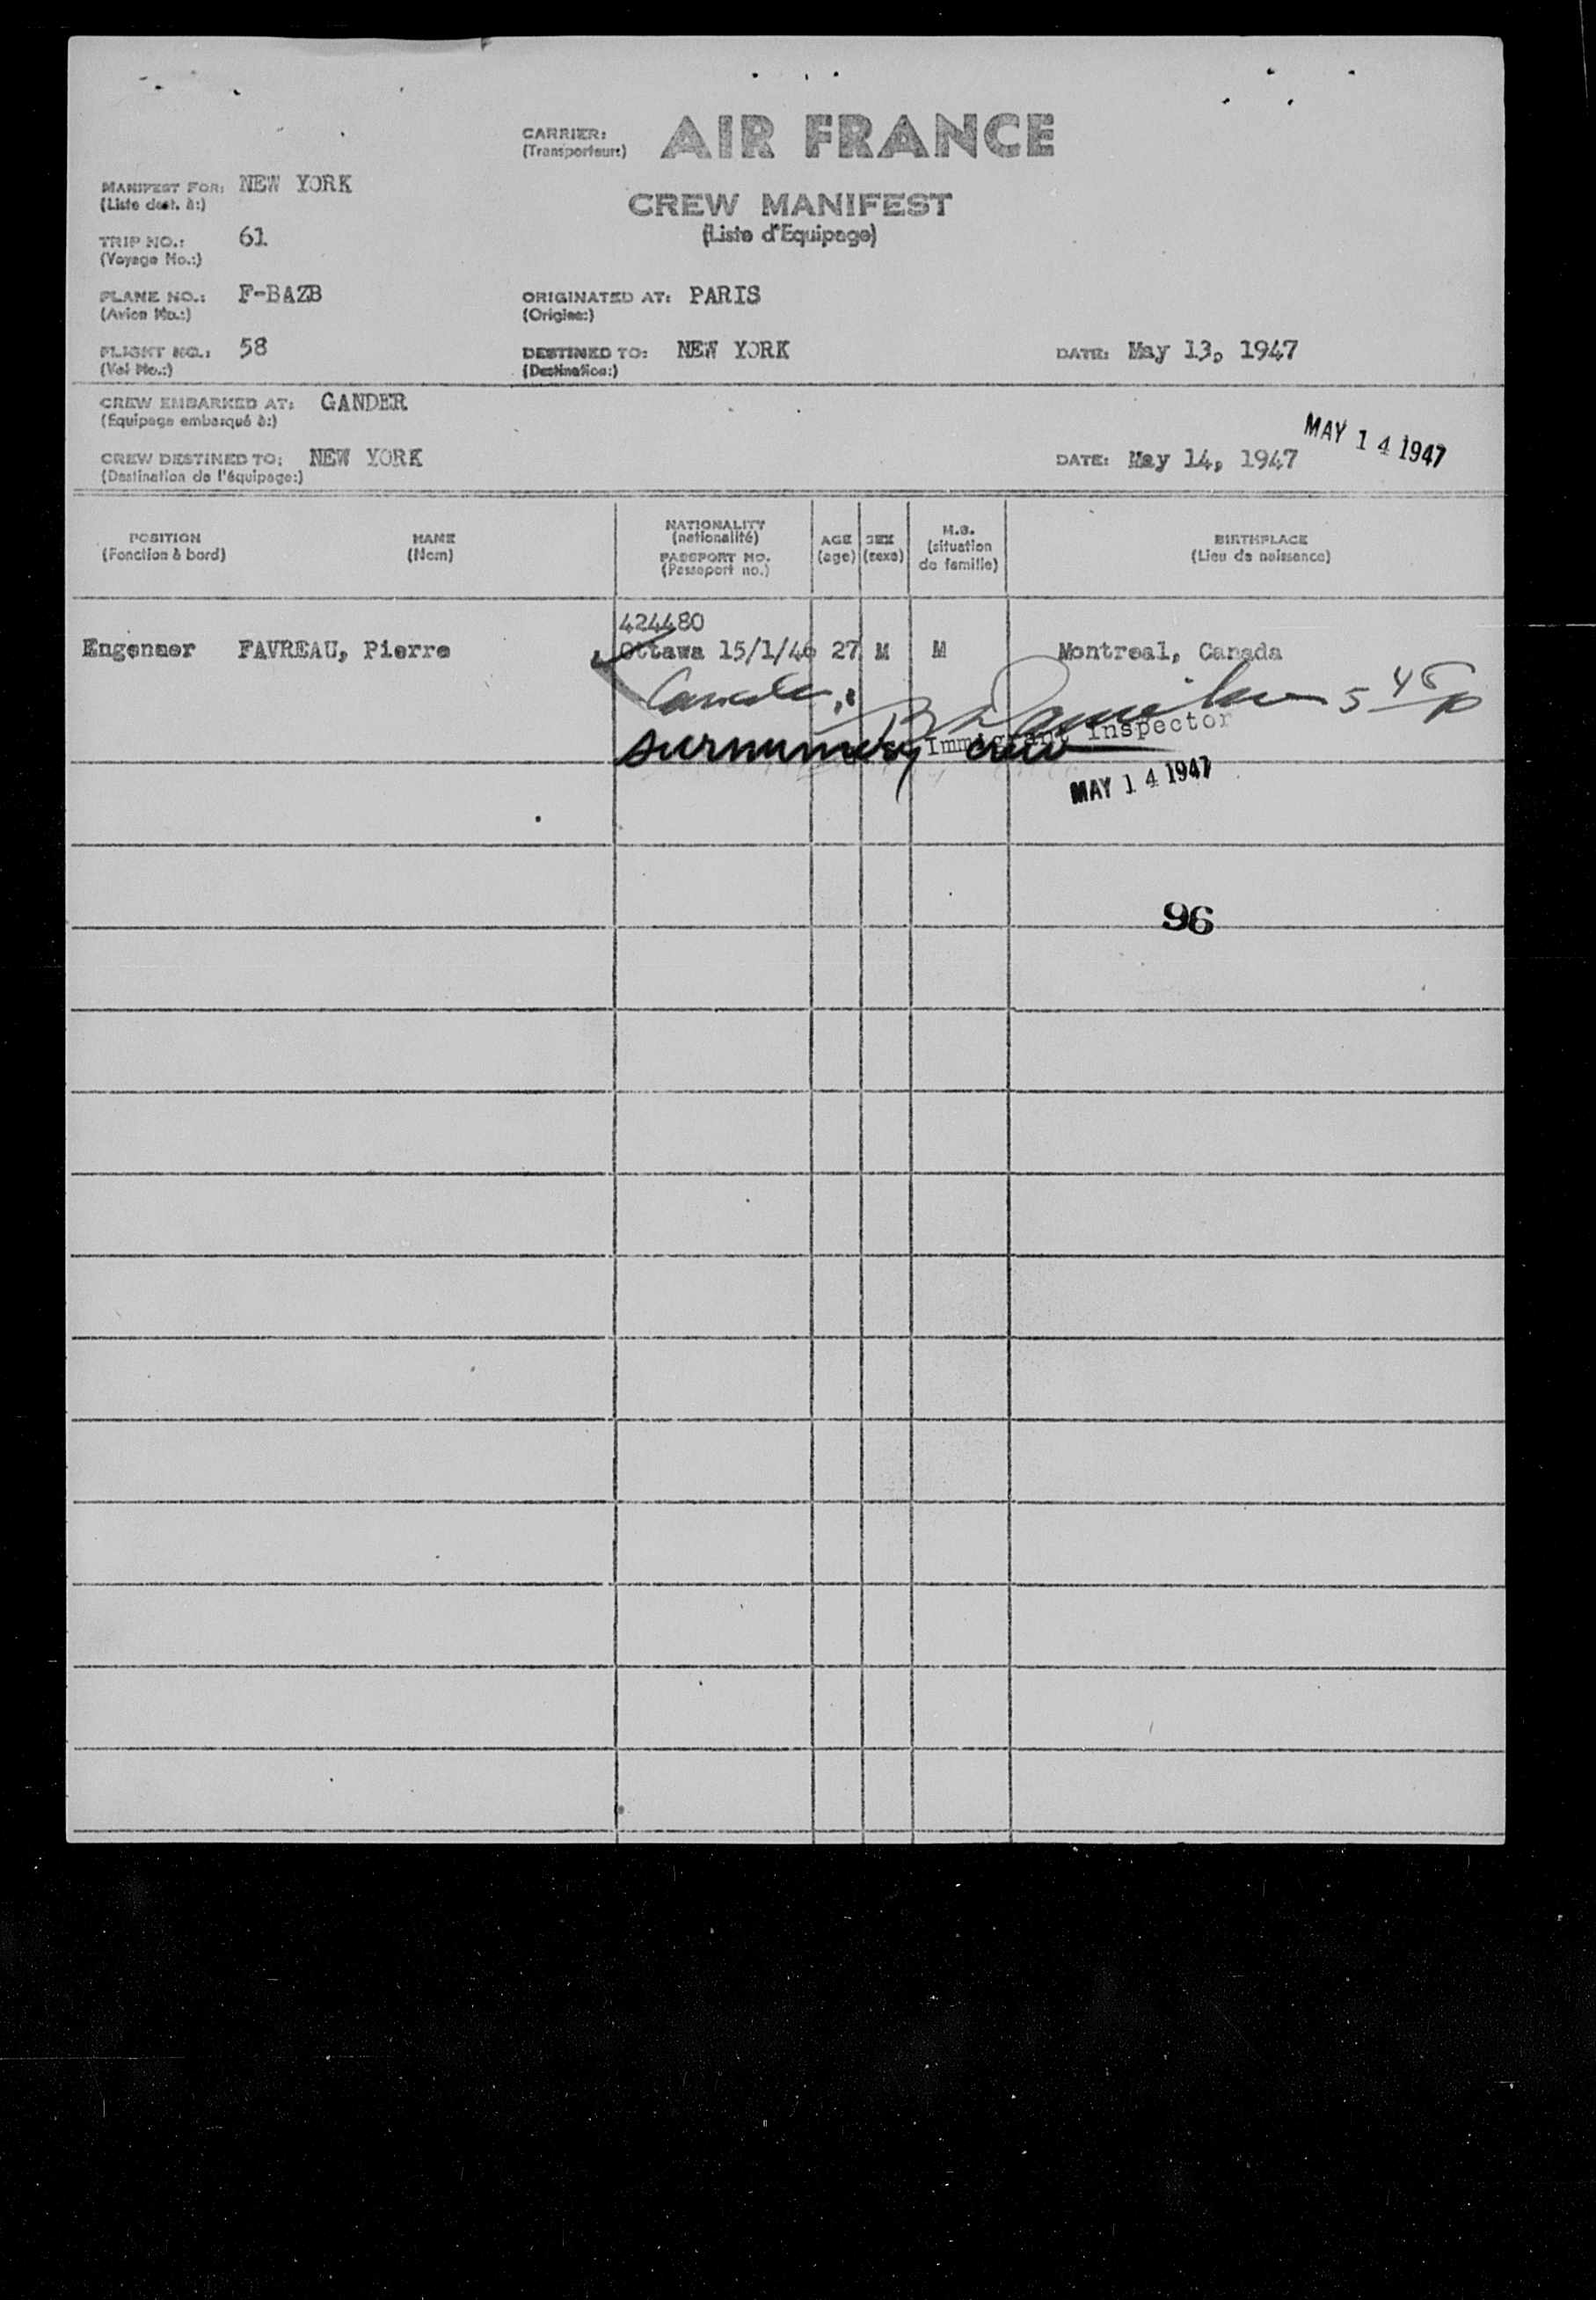 CARRIER: AIR FRANCE
(Transporteurs)
MANIFEST FOR: NEW YORK
(Liste dest. à:)
CREW MANIFEST
(Liste d'Equipage)
TRIP NO.: 61
(Voyage No.:)
PLANE NO.: F-BAZB
(Avion No.:)
ORIGINATED AT: PARIS
(Origine:)
FLIGHT NO.: 58
(Vol No.:)
DESTINED TO: NEW YORK
(Destination:)
DATE: May 13, 1947
CREW EMBARKED AT: GANDER
(Equipage embarqué à:)
MAY 14 1947
CREW DESTINED TO: NEW YORK
(Destination de l'équipage:)
DATE: May 14, 1947
POSITION
(Fonction à bord)
NAME
(Nom)
NATIONALITY
(nationalité)
PASSPORT NO.
(Passeport no.)
AGE
(age)
SEX
(sexe)
M.S.
(situation
de famille)
BIRTHPLACE
(Lieu de naissance)
424480
Engeneer FAVREAU, Pierre Ottawa 15/1/46 27 M M Montreal, Canada
Canada
Immigrant Inspector
surnumery crew
MAY 14 1947
96